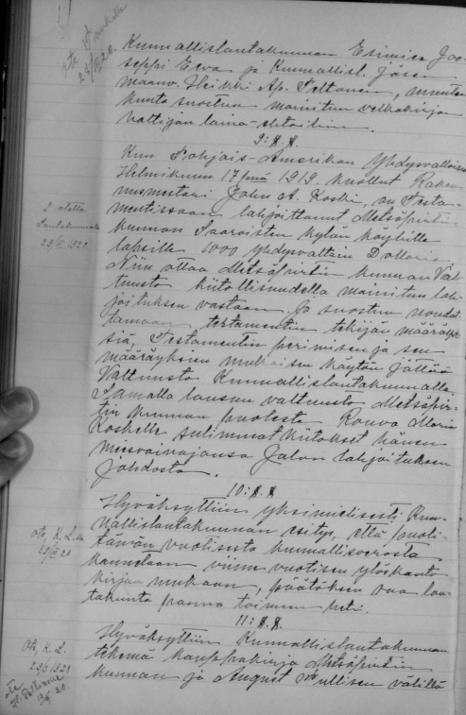 Kunnallislautakunnan Esimies Joo-
seppi Ewa ja Kunnallisl. Jäsen
maanv. Heikki Ap. Peltonen, muuten
kunta suostuu mainitun velkakirjan
haltijan laina-ehtoihin.
9: §. §.
Kun Pohjois-Amerikan Yhdysvalloissa
Helmikuun 17 pnä 1919. kuollut Raken-
nusmestari John A. Koski, on Testa-
mentissaan lahjoittanut Metsäpirtin
kunnan Saaroisten kylän köyhille
lapsille 1000 yhdysvaltain Dollaria
Niin ottaa Metsäpirtin kunnan Val-
tuusto kiitollisuudella mainitun lah-
joituksen vastaan. Ja suostuu noudat-
tamaan testamentin tekijän määräyk-
siä, Testamentin perimisen ja sen
määräyksien mukaisen käytön jättää
Valtuusto Kunnallislautakunnalle
Samalla lausuu valtuusto Metsäpir-
tin kunnan puolesta Rouva Maria
Koskelle sulimmat kiitokset hänen
miesvainajansa Jalon lahjoituksen
Johdosta.
10: §. §.
Hyväksyttiin yksimielisesti Kun-
nallislautakunnan esitys, että puoli
tämän vuotisesta kunnallisverosta
kannetaan viime vuotisen ylöskanto
kirjan mukaan, päätöksen saa lau-
takunta panna toimeen heti.
11: §. §.
Hyväksyttiin Kunnallislautakunnan
tekemä kauppakirja Metsäpirtin
kunnan ja August Pullisen välillä
ote
2 otetta
Lautakunnalle
ote, K. L.
ote, K. L.
ote